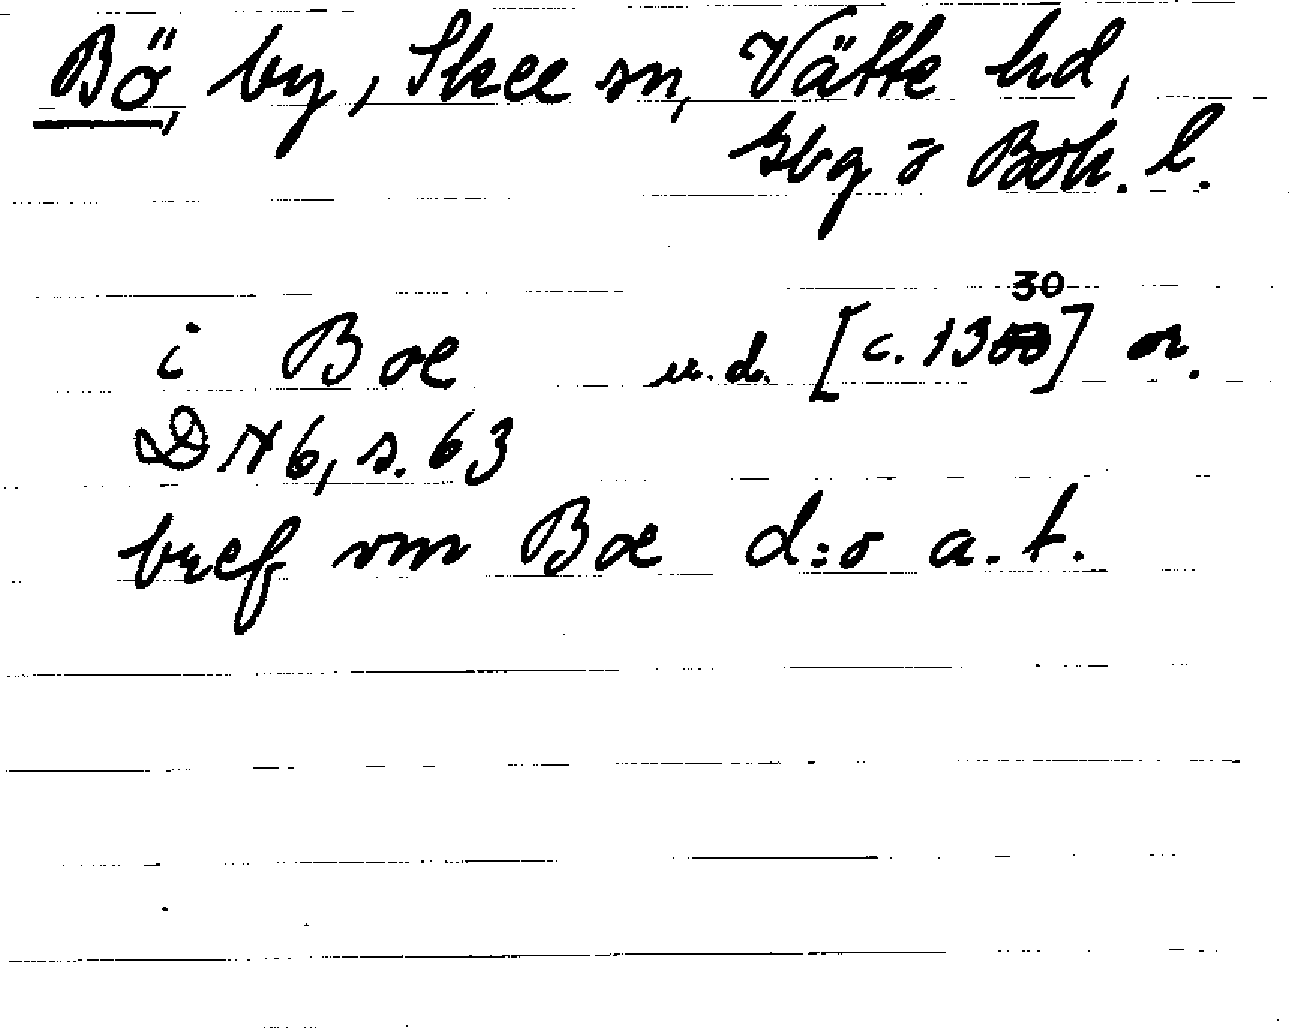 Bö, by, Skee sn, Vätte hd,
Gbg o Boh. l.
i Boe u.d. [c. 1330] or.
DN 6, s. 63
bref vm Boe d:o a. t.